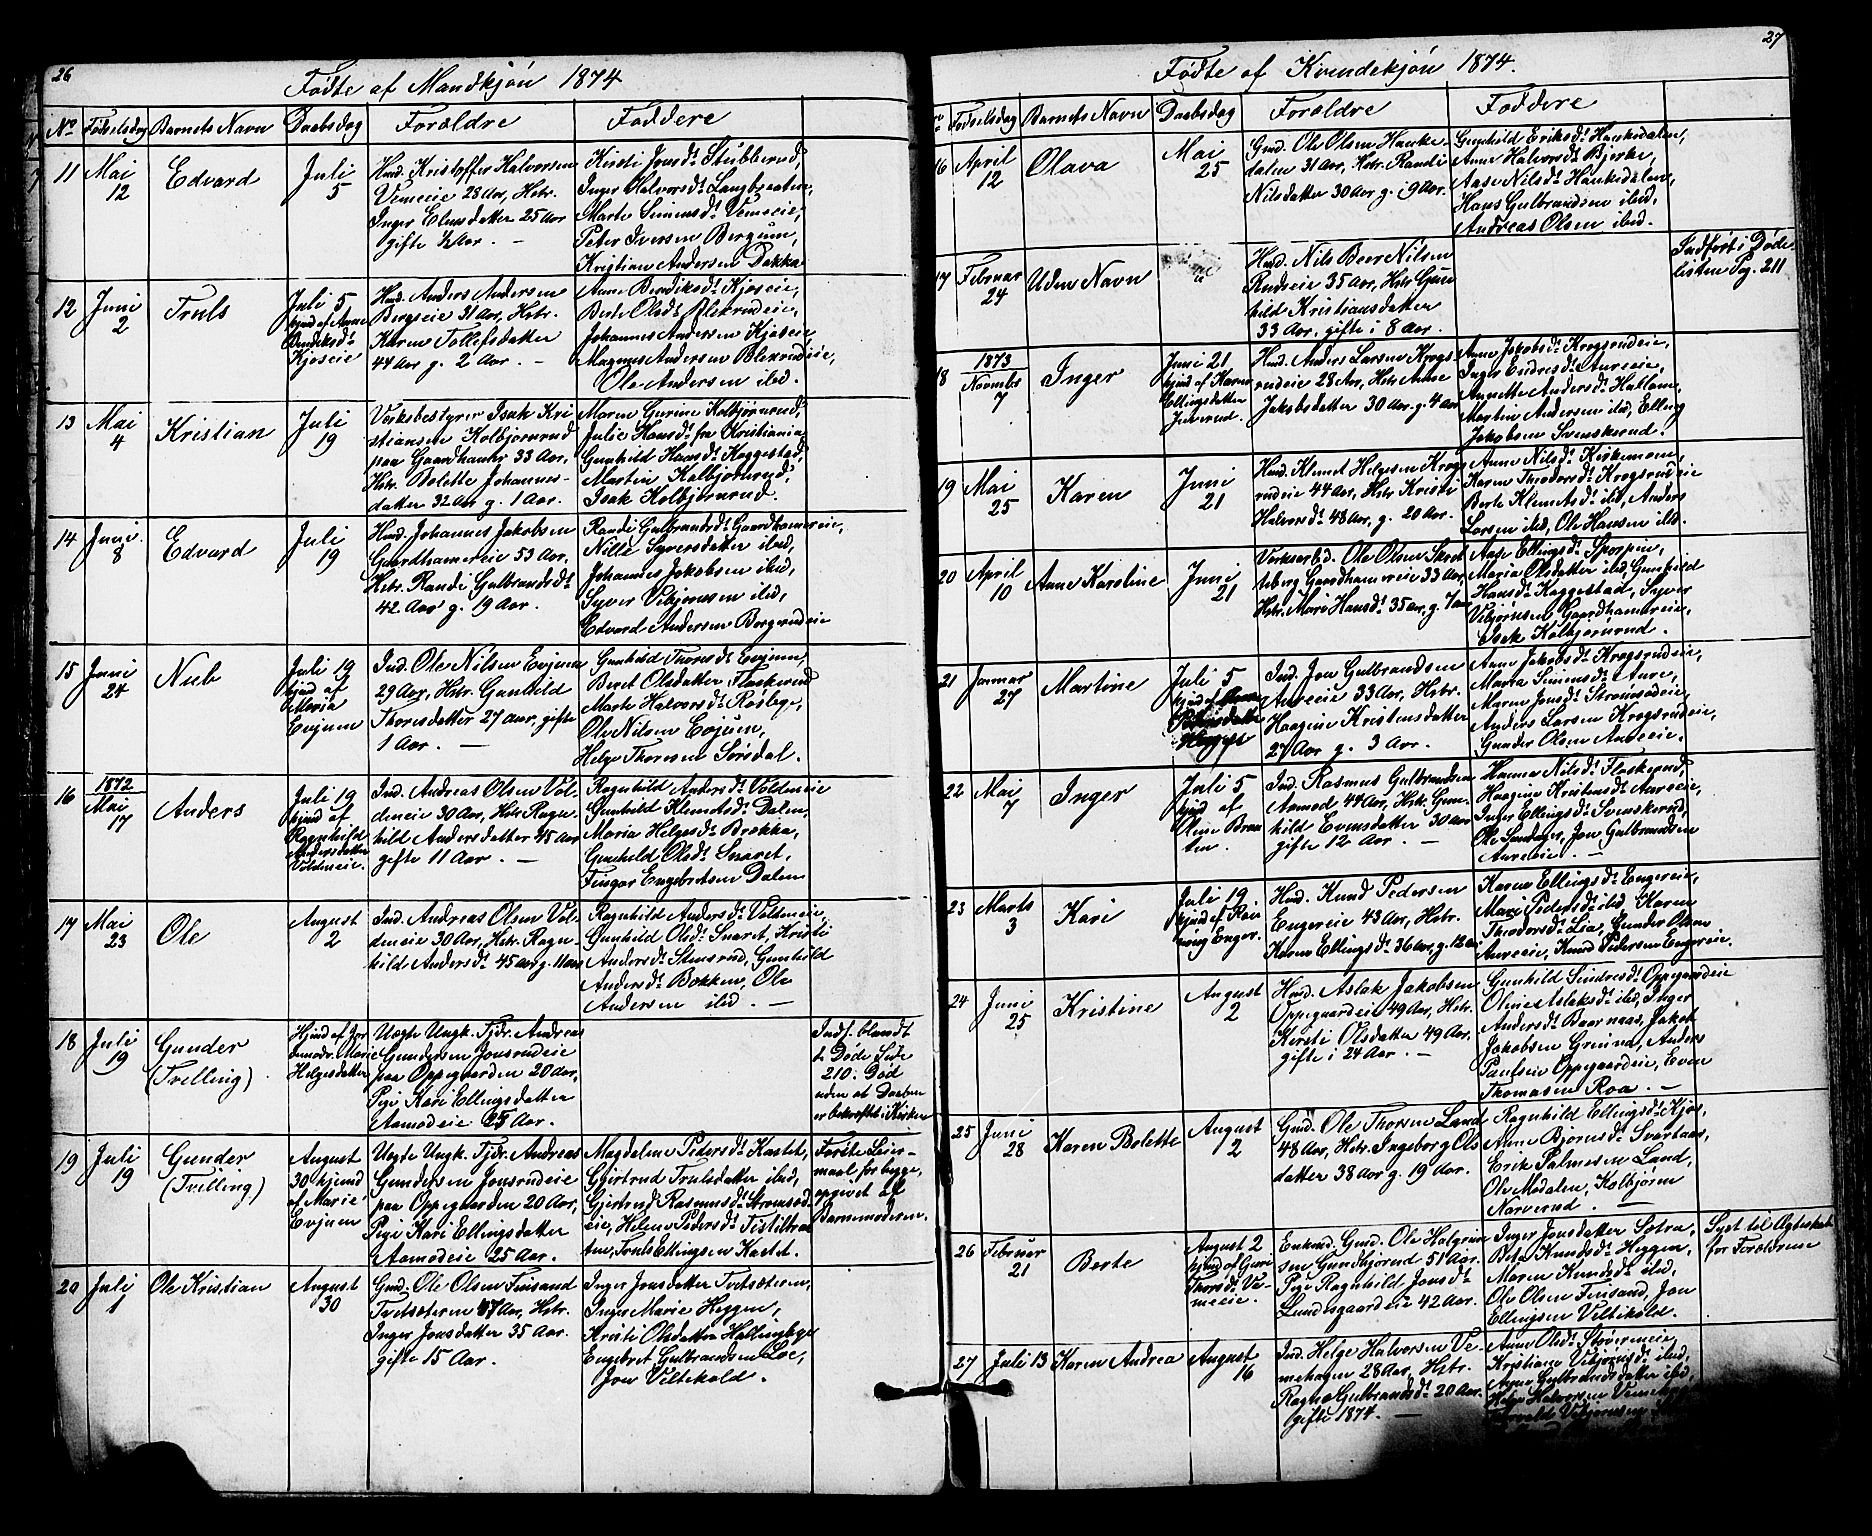 26
Fødte af Mandkjøn 1874
No Fødselsdag Barnets Navn Daabsdag Forældre Faddere
11 Mai 12
Edvard
Juli 5
Hmd. Kristoffer Halvorsen
Vemeeie 28 Aar, Hstr.
Inger Elensdatter 25 Aar
gifte ½ Aar. –
Kirsti Jonsdr Stubberud,
Inger Halvorsdr Langbraaten,
Marte Simensdr Vemeeie,
Peter Iversen Bergum,
Kristian Andersen Dokka
12 Juni 2
Truls
Juli 5
hjmd. af Anne
Bendiksdr
Kjoseie
Hmd. Anders Andersen
Bergseie 31 Aar, Hstr.
Karen Tollefsdatter
44 Aar g. 2 Aar. –
Anne Bendiksdr Kjoseie,
Berte Olsdr Blekrudeie,
Johannes Andersen Kjoseie,
Magnus Andersen Blekrudeie,
Ole Andersen ibid.
13 Mai 4
Kristian
Juli 19
Verksbestyrer Isak Kri
stiansen Kolbjørnrud
paa Gaardhamar 33 Aar,
Hstr. Bolette Johannes-
datter 32 Aar g. 1 Aar.
Maren Gurine Kolbjørnrud,
Julie Hansdr fra Kristiania
Gunhild Hansdr Kaggestad,
Martin Kolbjørnrud,
Isak Kolbjørnrud.
14 Juni 8
Edvard
Juli 19
Hmd. Johannes Jakobsen
Gaardhamereie 53 Aar,
Hstr. Randi Gulbrandsdr
42 Aar g. 19 Aar.
Randi Gulbrandsdr Gaardhamereie,
Nille Syversdatter ibid,
Johannes Jakobsen ibid,
Syver Vebjørnsen ibid,
Edvard Andersen Borgerudeie
15 Juni 24
Nub
Juli 19
hjmd af
Maria
Evjuen
Ind. Ole Nilsen Evjuen
29 Aar, Hstr. Gunhild
Thoresdatter 27 aar, gifte
1 Aar. –
Gunhild Thoresdr Evjuen,
Beret Olsdatter Flaskerud
Marte Halvorsdr Røslege,
Ole Nilsen Evjuen,
Helge Thoresen Sørsdal.
16 1872 Mai 17
Anders
Juli 19
hjmd af
Ragnhild
Andersdatter
Voldeneie.
Ind. Andreas Olsen Vol-
deneie 30 Aar, Hstr. Ragn
hild Andersdatter 45 Aar
gifte 11 Aar. –
Ragnhild Andersdr Voldeneie
Gunhild Klemetsdr Dalen,
Maria Helgesdr Brekka,
Gunhild Olsdr Snaret,
Fingar Engebretsen Dalen
17 Mai 23
Ole
August 2
Ind. Andreas Olsen Vol-
deneie 30 Aar, Hstr. Ragn-
hild Andersdr 45 aar g. 11 aar
Ragnhild Andersdr Voldeneie,
Gunhild Olsdr Snaret, Kristi
Andersdr Stensrud, Gunhild
Andersdr Bakken, Ole
Andersen ibid. –
18 Juli 19
Gunder
(Tvilling)
Hjmd af Jor
demodr. Marie
Helgesdatter
Uægte Ungk. Tjdr. Andreas
Gundersen Jonsrudeie
paa Oppegaarden 20 Aar,
Pige Kari Ellingsdatter
Aamodeie 25 Aar.
Indf. blandt
de Døde Side
210. Død
uden at Daaben
er bekræftet i Kirken
19 Juli 19
Gunder
(Tvilling)
August
30 hjemd
af Marie
Evjuen
Uægte Ungk. Tjdr. Andreas
Gundersen Jonsrudeie
paa Oppegaarden 20 Aar,
Pige Kari Ellingsdatter
Aamodeie 25 Aar.
Magdalene Pedersdr Kastet,
Gjertrud Trulsdatter ibid,
Gjertrud Rasmusdr Strømsod-
eie, Helene Pedersdr Tistilbraa
ten, Truls Ellingsen Kastet.
Første Leier-
maal for begge,
opgivet af
Barnemoderen.
20 Juli 1
Ole Kristian
August 30
Gmd. Ole Olsen Finsand
Tvetsæteren 47 Aar, Hstr.
Inger Jonsdatter 35 Aar.
gifte 15 Aar.
Inger Jonsdatter Tvetsæteren,
Inger Marie Heggen,
Kristi Olsdatter Hallingbye
Engebret Gulbrandsen Loe,
Jon Veltekold.
27
Fødte af Kvindekjøn 1874.
No Fødselsdag Barnets Navn Daabsdag Forældre Faddere
16 April 12
Olava
Mai 25
Gmd. Ole Olsen Hauke
dalen 31 Aar, Hstr. Randi
Nilsdatter 30 Aar g. i 9 Aar.
Gunhild Eriksdr Haukedalen,
Anne Halvorsdr Bjerke,
Aase Nilsdr Haukedalen,
Hans Gulbrandsen ibid,
Andreas Olsen ibid.
17 Februar 24
Uden Navn
Hmd. Nils Beer Nilsen
Rudseie 35 Aar, Hstr. Gun
hild Kristiansdatter
33 Aar, gifte i 8 Aar.
Indført i Døde
listen Pag. 211
18 1873 Novmbr 7
Inger
Juni 21
hjmd af Karen
Ellingsdatter
Juterud.
Hmd. Anders Larsen Krogs
rudeie 28 Aar, Hstr. Anne
Jakobsdatter 30 Aar g. 4 Aar
Anne Jakobsdr Krogsrudeie,
Inger Endresdr Aureeie,
Annette Andersdr Hallom,
Martin Andersen ibid, Elling
Jakobsen Svenskerud.
19 Mai 25
Karen
Juni 21
Hmd. Klemet Helgesen Krogs
rudeie 44 Aar, Hstr. Kristi
Halvorsdr 48 Aar, g. 20 Aar.
Anne Nilsdr Kirkemoen,
Karen Theodorsdr Krogsrudeie
Berte Klemetsdr ibid, Anders
Larsen ibid, Ole Hansen ibid.
20 April 10
Anne Karoline
Juni 21
Verksarbd. Ole Olsen Skret
teberg Gaardhamereie 33 Aar
Hstr. Mari Hansdr 35 aar, g. 7 aar
Aase Ellingsdr Sporpen,
Maria Olsdatter ibid, Gunhild
Hansdr Kaggestad, Syver
Vebjørnsen Gaardhamereie,
Isak Kolbjørnrud.
21 Januar 27
Martine
Juli 5
hjmd af
Ind. Jon Gulbrandsen
Aureeie 33 Aar, Hstr.
Haagine Kristensdatter
27 Aar g. 3 Aar.
Anne Jakobsdr Krogsrudeie,
Maria Simensdr Aure,
Maren Jonsdr Strømsodeie,
Anders Larsen Krogsrudeie,
Gunder Olsen Aureeie.
22 Mai 7
Inger
Juli 5
hjmd af
Oline Braa
ten.
Ind. Rasmus Gulbrandsen
Aamod 44 Aar, Hstr. Gun-
hild Evensdatter 30 aar
gifte 12 Aar. –
Hanna Nilsdr Flaskerud,
Haagine Kristensdr Aureeie,
Inger Ellingsdr Svenskerud,
Ole Sundøen, Jon Gulbrandsen
Aureeie. –
23 Marts 3
Kari
Juli 19
hjmd af Ran
veig Enger.
Hmd. Knud Pedersen
Engereie 43 Aar, Hstr.
Karen Ellingsdr 36 aar, g. 12 aar
Karen Ellingsdr Engereie,
Mari Pedersdr ibid, Karen
Theodorsdr Lia, Gunder Olsen
Aureeie, Knud Pedersen Engereie.
24 Juni 25
Kristine
August 2
Hmd. Aslak Jakobsen
Oppegaardeie 49 Aar, Hstr.
Kirsti Olsdatter 49 Aar,
gifte i 24 Aar. –
Gunhild Sindresdr Oppegaardeie
Oline Aslaksdr ibid, Inger
Andersdr Baarnaas, Jakob
Jakobsen Greina, Anders
Paulsen Oppegaardeie, Even
Thomasen Roa. –
25 Juni 28
Karen Bolette
August 2
Gmd. Ole Thorsen Land
48 Aar, Hstr. Ingeborg Ols
datter 38 Aar g. 19 Aar.
Ragnhild Ellingsdr Kjos,
Anne Bjørnsdr Svartaas,
Erik Palmesen Land,
Ole Modalen, Kolbjørn
Narverud. –
26 Februar 21
Berte
August 2
hjmd af Guri
Thorsdr Ve-
meeie.
Enkmd. Gmd. Ole Halgrim
sen Gundhjørud 51 Aar.
Pige Ragnhild Jonsdr
Lundsgaardeie 42 Aar.
Inger Jonsdatter Sotra,
Berte Knudsdr Heggen,
Maren Knudsdr ibid,
Ole Olsen Finsand, Jon
Ellingsen Veltekold.
Lyst til Ægteskab
for Forældrene
27 Juli 13
Karen Andrea
August 16
Ind. Helge Halvorsen Ve-
mehagen 28 Aar, Hstr.
Ragna Gulbrandsdr 20 Aar.
gifte 1874. –
Anne Olsdr Strøermeie,
Kristiane Vebjørnsdr ibid,
Anne Gulbrandsdatter ibid,
Helge Halvorsen